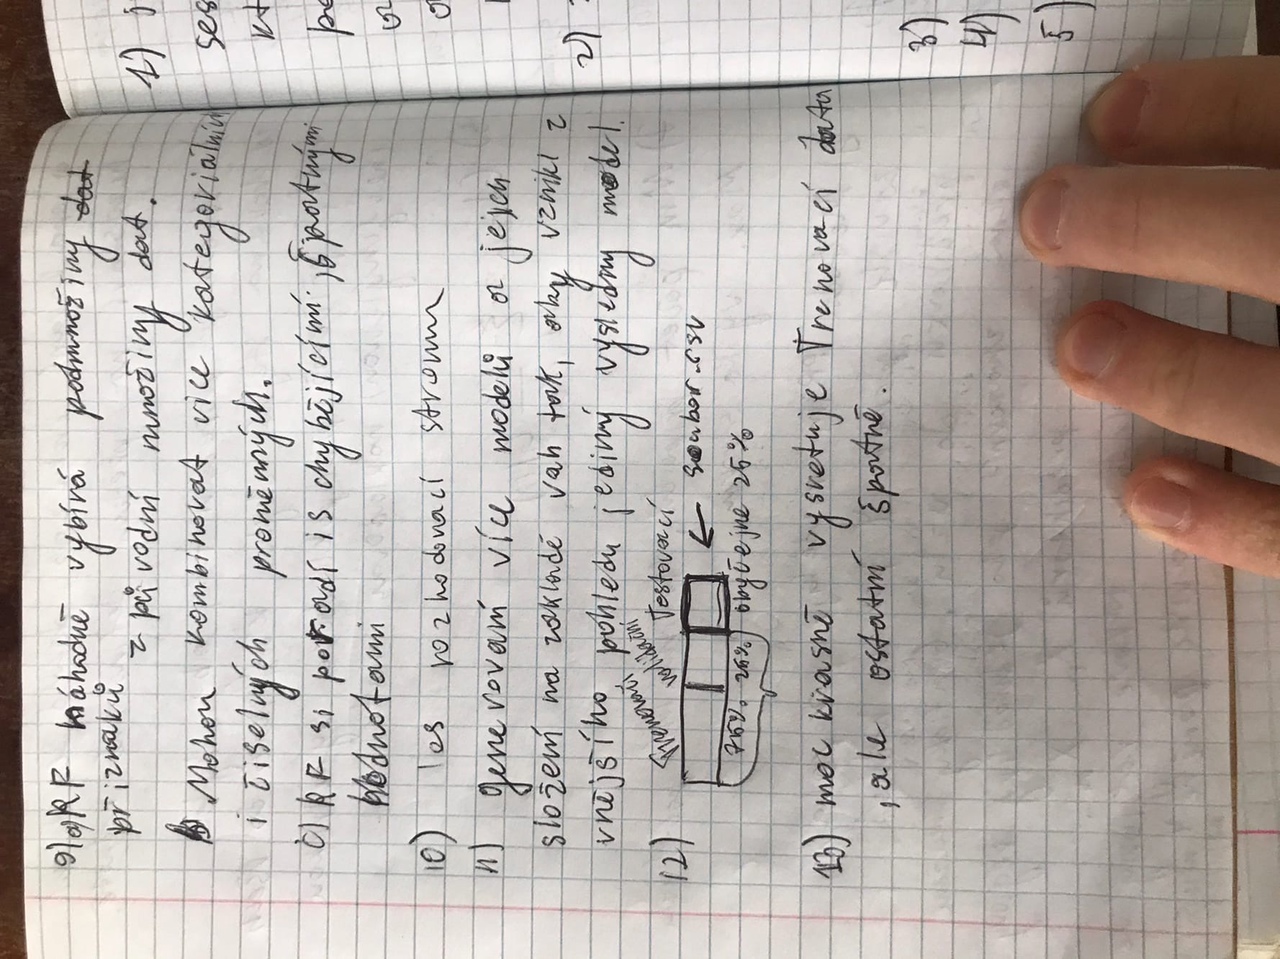 9) a) RF náhodně vybírá podmnožiny dat
příznaků z původní množiny dat.
b) Mohou kombinovat více kategoriálních
i číselných proměnných.
c) RF si poradí i s chybějícími, špatnými
hodnotami
10) les rozhodovací stromu
11) generování více modelů a jejich
složení na základě vah tak, aby vznikl z
vnějšího pohledu jediný výsledný model.
12) trénovací validační Testovací
← soubor.csv
75% 25% obyčejne 25%
13) moc krásně vysvetuje Trenovací data
, ale ostatní špatně.
1) j
ses
kt
pe
2)
3)
4)
5)